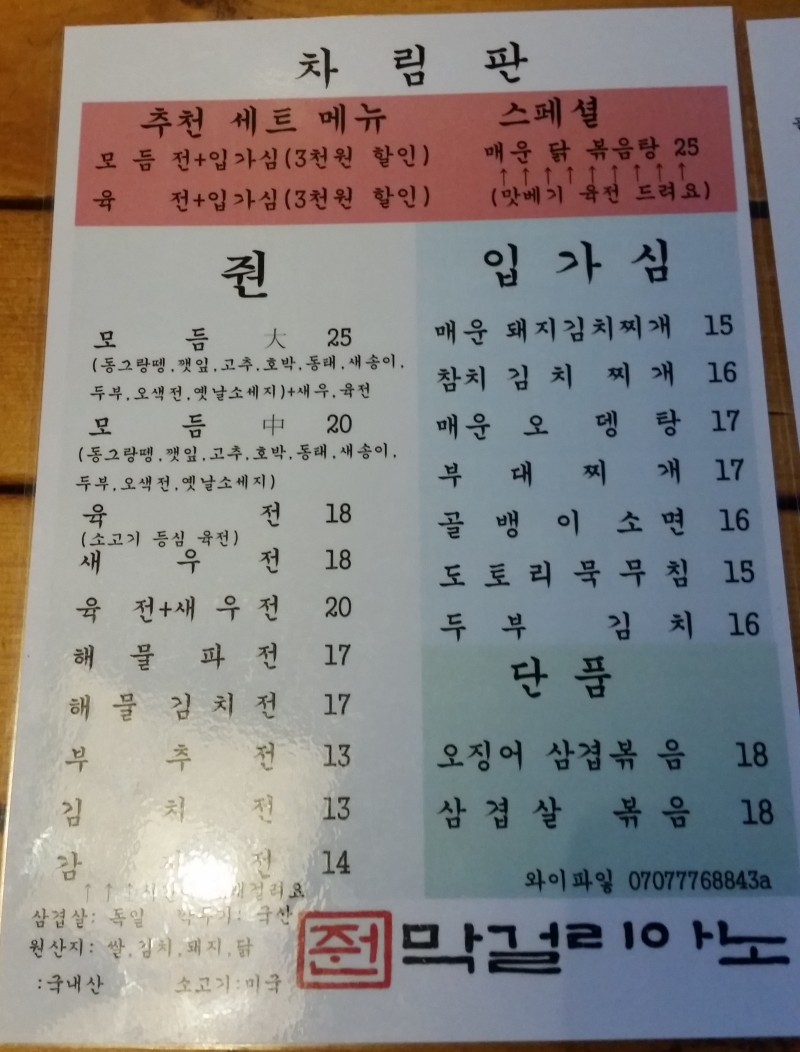 차림판
추천 세트 메뉴
모듬전+입가심(3천원 할인)
육전+입가심(3천원 할인)
스페셜
매운 닭 볶음탕 25
↑↑↑↑↑↑↑↑↑
(맛베기 육전 드려요)
모듬 大 25
(동그랑뗑,깻잎,고추,호박,동태,새송이,
두부,오색전,옛날소세지)+새우,육전
모듬 中 20
(동그랑뗑,깻잎,고추,호박,동태,새송이,
두부,오색전,옛날소세지)
육전 18
(소고기 등심 육전)
새우전 18
육전+새우전 20
해물파전 17
해물김치전 17
부추전 13
김치전 13
감전 14
↑↑↑
삼겹살: 독일 깍두기: 국산
원산지: 쌀,김치,돼지,닭
:국내산 소고기:미국
입가심
매운 돼지김치찌개 15
참치김치찌개 16
매운오뎅탕 17
부대찌개 17
골뱅이소면 16
도토리묵무침 15
두부김치 16
단품
오징어 삼겹볶음 18
삼겹살 볶음 18
와이파잉 07077768843a
막걸리아노